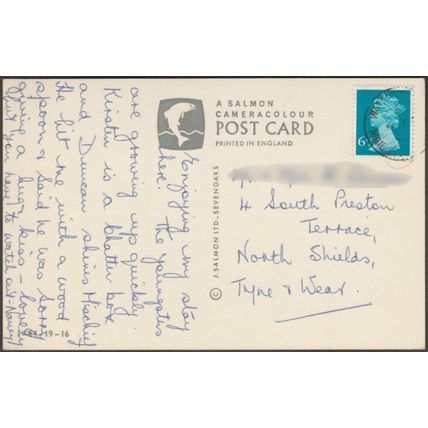 A SALMON
CAMERACOLOUR
POST CARD
PRINTED IN ENGLAND
© J. SALMON LTD., SEVENOAKS
Enjoying my stay
here. The youngsters
are growing up quickly.
Kirsten is a chatter box
and Duncan shiers Mischief
He hit me with a wood
spoon & said he was sorry
giving a big kiss – lovely
but you have to watch out - Nancy
4 South Preston
Terrace,
North Shields,
Tyne & Wear.
19-16
6½